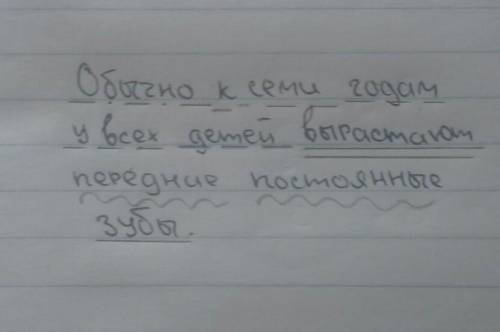 Обычно к семи годам
у всех детей вырастают
передние постоянные
зубы.